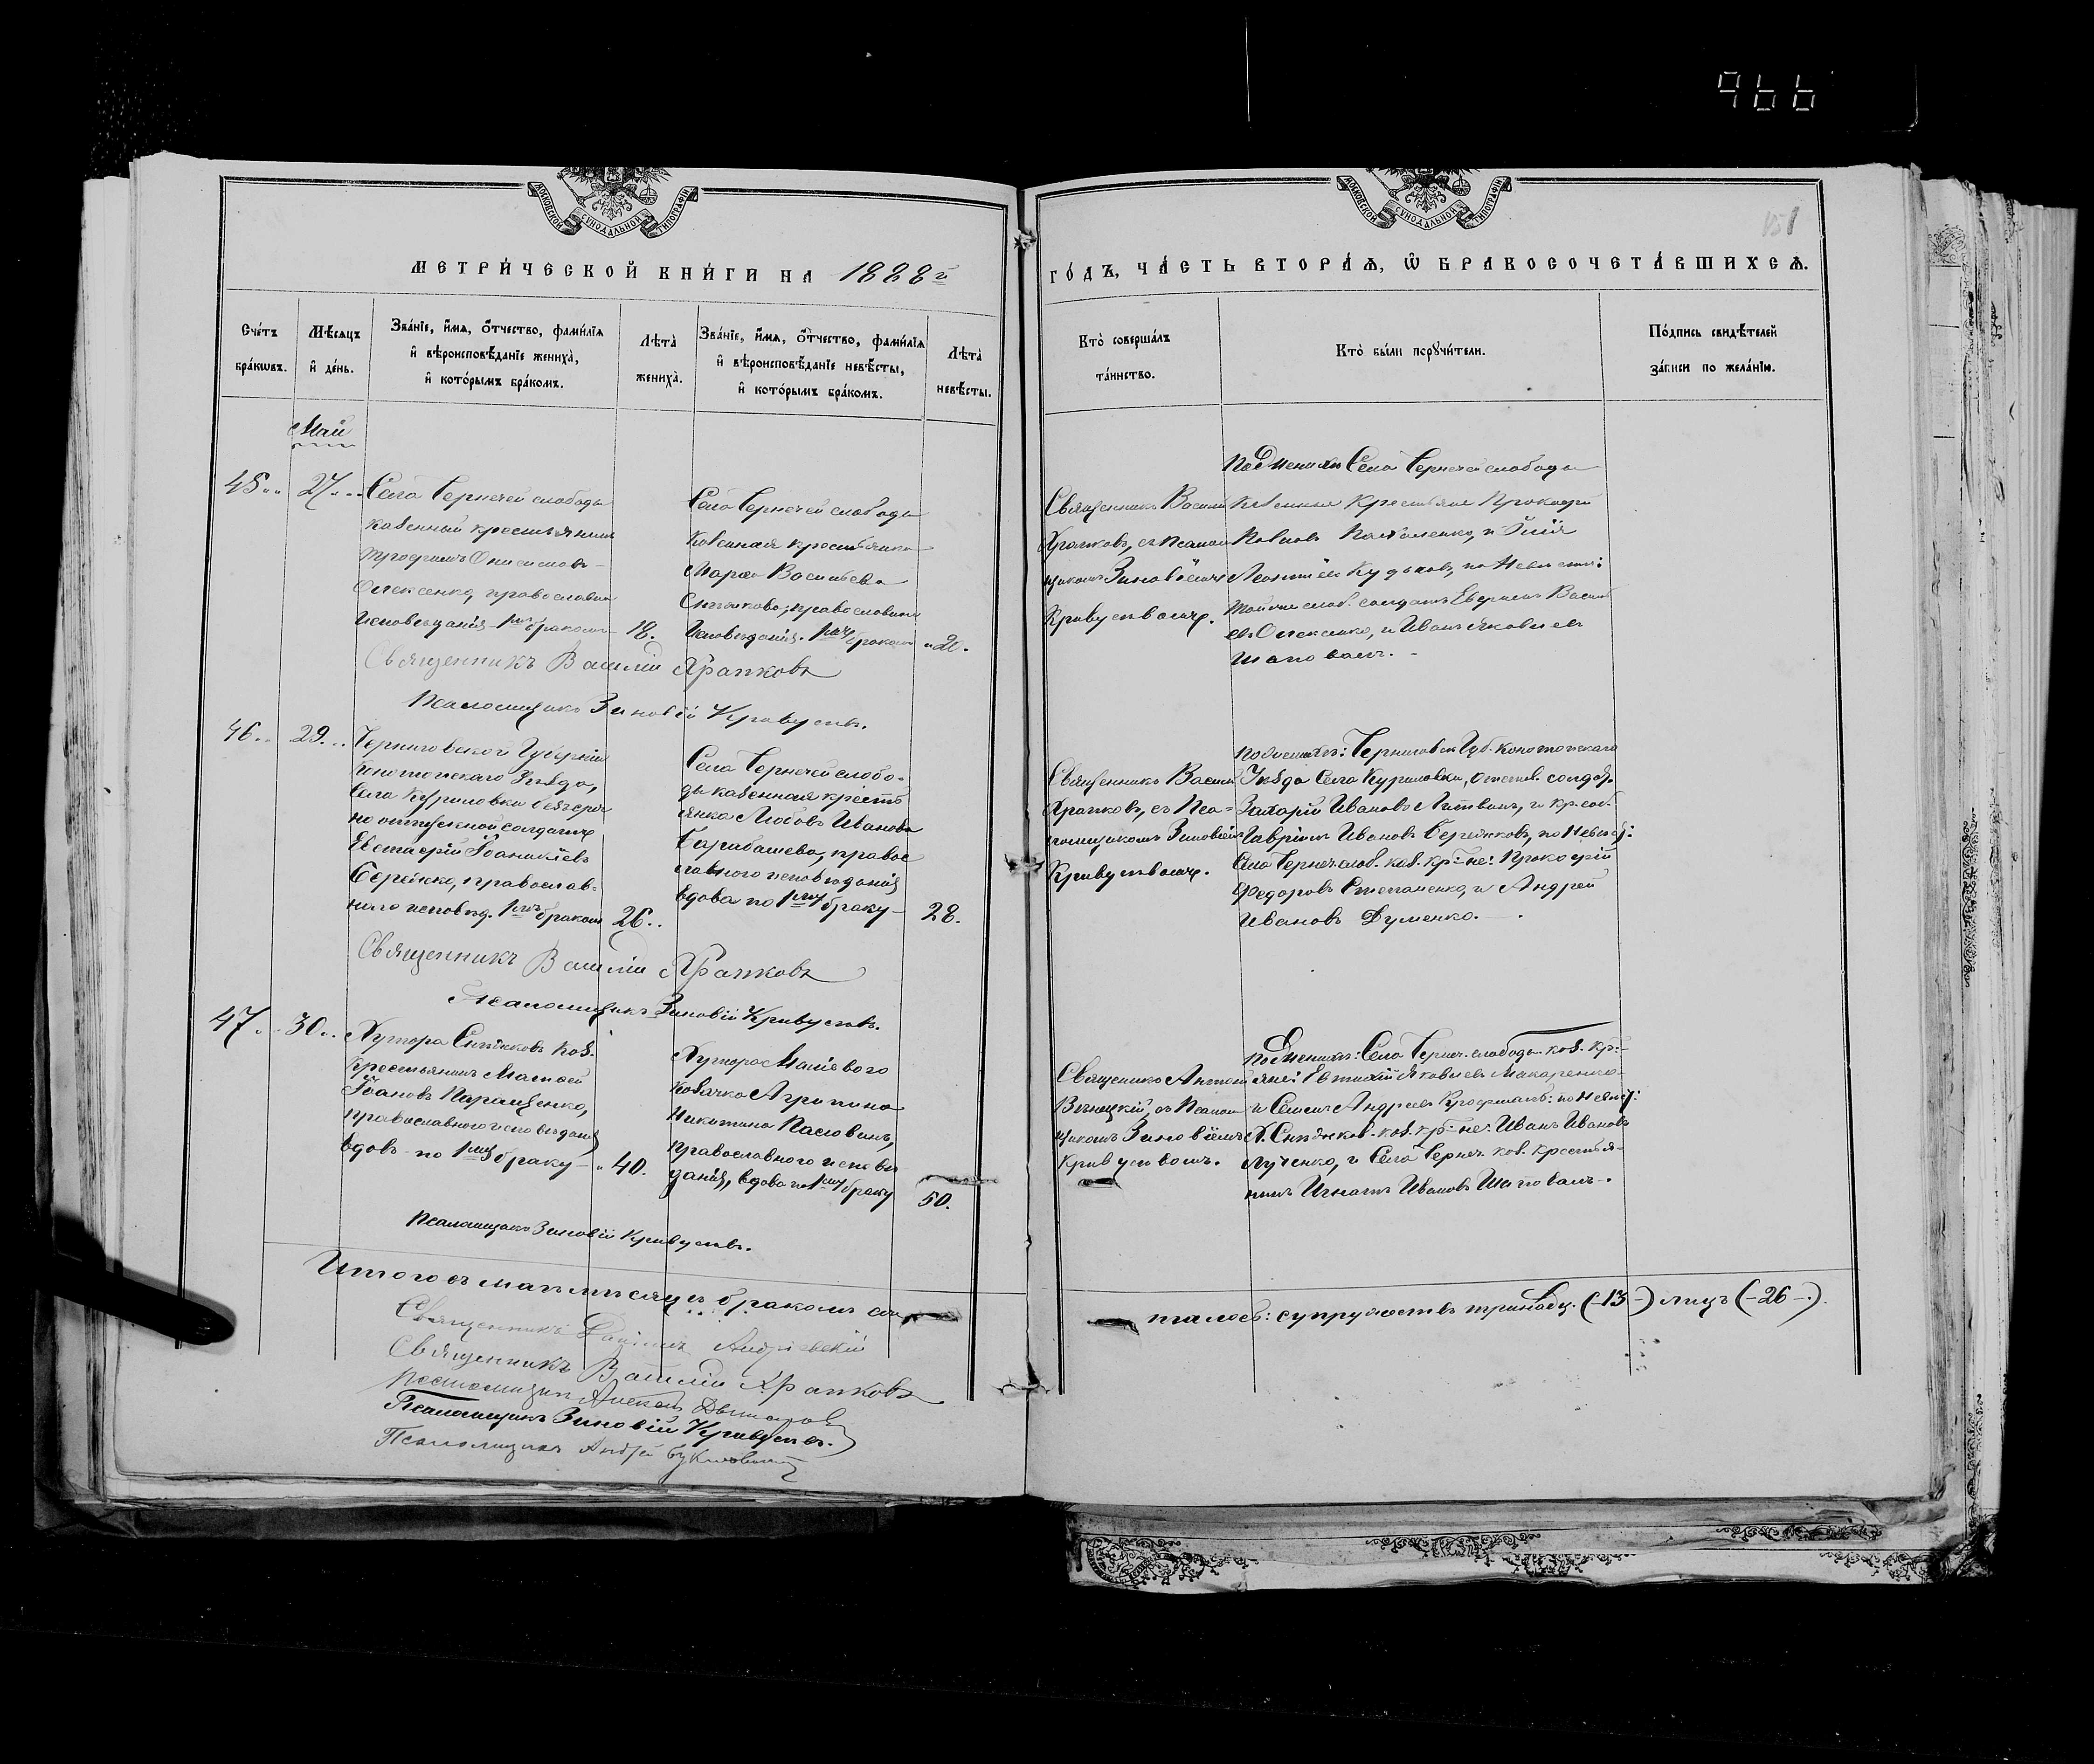 966
151
МОСКОВСКОЙ СУНОДАЛЬНОЙ ТИПОГРАФІИ
МОСКОВСКОЙ СУНОДАЛЬНОЙ ТИПОГРАФІИ
МЕТРИ́ЧЕСКОЙ КНИ́ГИ НА 1888й
ГО́ДЪ, ЧА́СТЬ ВТОРА́Я, Ѿ БРАКОСОЧЕТА́ВШИХСЯ.
Счётъ
бра́кωвъ.
Мѣ́сяцъ
и҆ де́нь.
Зва́нїе, и҆́мя, ѻ҆́тчество, фами́лїя
и҆ вѣроисповѣ́данїе жениха̀,
и҆ кото́рымъ бра́комъ.
Лѣта̀
жениха̀.
Зва́нїе, и҆́мя, ѻ҆́тчество, фами́лїя
и҆ вѣроисповѣ́данїе невѣ́сты,
и҆ кото́рымъ бра́комъ.
Лѣта̀
невѣ́сты.
Кто̀ соверша́лъ
та́инство.
Кто̀ бы́ли порꙋчи́тели.
По́дпись свидѣ́телей
за́писи по жела́нїю.
Май
45.. 27...
Села Чернечей слободы
казенный крестьянинъ
Трофимъ Онисимовъ
Олексенко, православна
исповѣданія 1мъ бракомъ 18.
Села Чернечей слободы
казенная крестьянка
Марѳа Васильева
православнаго
исповѣданія. 1мъ бракомъ 20.
Священникъ Василій
Храпковъ, съ псалом
щикомъ Зиновіемъ
Кривусевомъ.
По женихѣ Села Чернечей слободы
казенные крестьяне Прокофій
Павловъ и
Леонтіевъ по невѣстѣ:
той же слоб. солдатъ Васил
евъ Олексенко, и Иванъ Яковлевъ
Шаповалъ.
Священникъ Василій Храпковъ
Псаломщикъ Зиновій Кривусевъ.
46.. 29...
Черниговской Губерніи
Конотопскаго Уѣзда,
Села Куриловки безсроч
но отпускной солдатъ
Евстафій Іоаникіевъ
Бережко, православ-
наго исповѣд. 1мъ бракомъ 26..
Села Чернечей слобо-
ды казенная кресть
янка Любовь Иванова
Барабашева, правос
лавнаго исповѣданія
вдова по 1му браку 28.
Священникъ Василій
Храпковъ, съ Пса-
ломщикомъ Зиновіемъ
Кривусевомъ.
По женихѣ: Черниговск. Губ. Конотопскаго
Уѣзда Села Куриловки, отстав. солдатъ
Захарій Ивановъ Литвинъ, и
Гавріилъ Ивановъ Бережковъ, по невѣстѣ:
Села Чернеч. слоб. каз. кр-не: Прокофій
Федоровъ Степаненко, и Андрей
Ивановъ Думенко.
Священникъ Василій Храпковъ
Псаломщикъ Зиновій Кривусевъ.
47.. 30..
Хутора каз.
крестьянинъ Матѳей
Іоановъ Паращенко,
православнаго исповѣданія
вдовъ по 1мъ браку 40.
Хутора
казачка Агрипина
Никитина
православнаго исповѣ
данія, вдова по 1му браку 50.
Священникъ Антоній
съ Псалом
щикомъ Зиновіемъ
Кривусевомъ.
По женихѣ: Села Чернеч. слободы каз. кр-
яне: Евтихій Яковлевъ Макаренко
и Семенъ Андреевъ по невѣстѣ:
Х. каз. кр-не: Иванъ Ивановъ
Лученко, и Села Чернеч. каз. крестья-
нинъ Игнатъ Ивановъ Шаповалъ.
Псаломщикъ Зиновій Кривусевъ.
Итого въ маѣ мѣсяцѣ бракомъ соче
талось: супружествъ тринадц. (-13-) лицъ (-26-).
Священникъ Андріевскій
Священникъ Василій Храпковъ
Псаломщикъ
Псаломщикъ Зиновій Кривусевъ.
Псаломщикъ Андрей